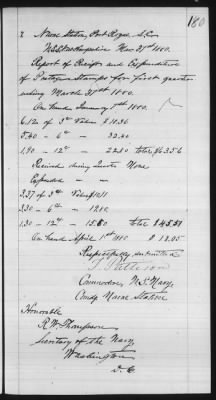 180
Naval Station, Port Royal, S.C.
March 31st 1880.
Report of Receipts and Expenditures
of Postage Stamps for first quarter
ending March 31st 1880.
On hand January 1st 1880.
612 of 3ct Value $18.36
540 " 6 " " 32.40
190 " 12 " " 22.80 total, $73.56
Received during Quarter None
Expended
337 of 3ct Value $10.11
330 " 6 " "
130 " 12 " 15.60 total
On hand April 1st 1880 $
Respectfully submitted
Commodore, U.S. Navy,
Comdg Naval Station
Honorable
R.W. Thompson
Secretary of the Navy,
Washington
D.C.